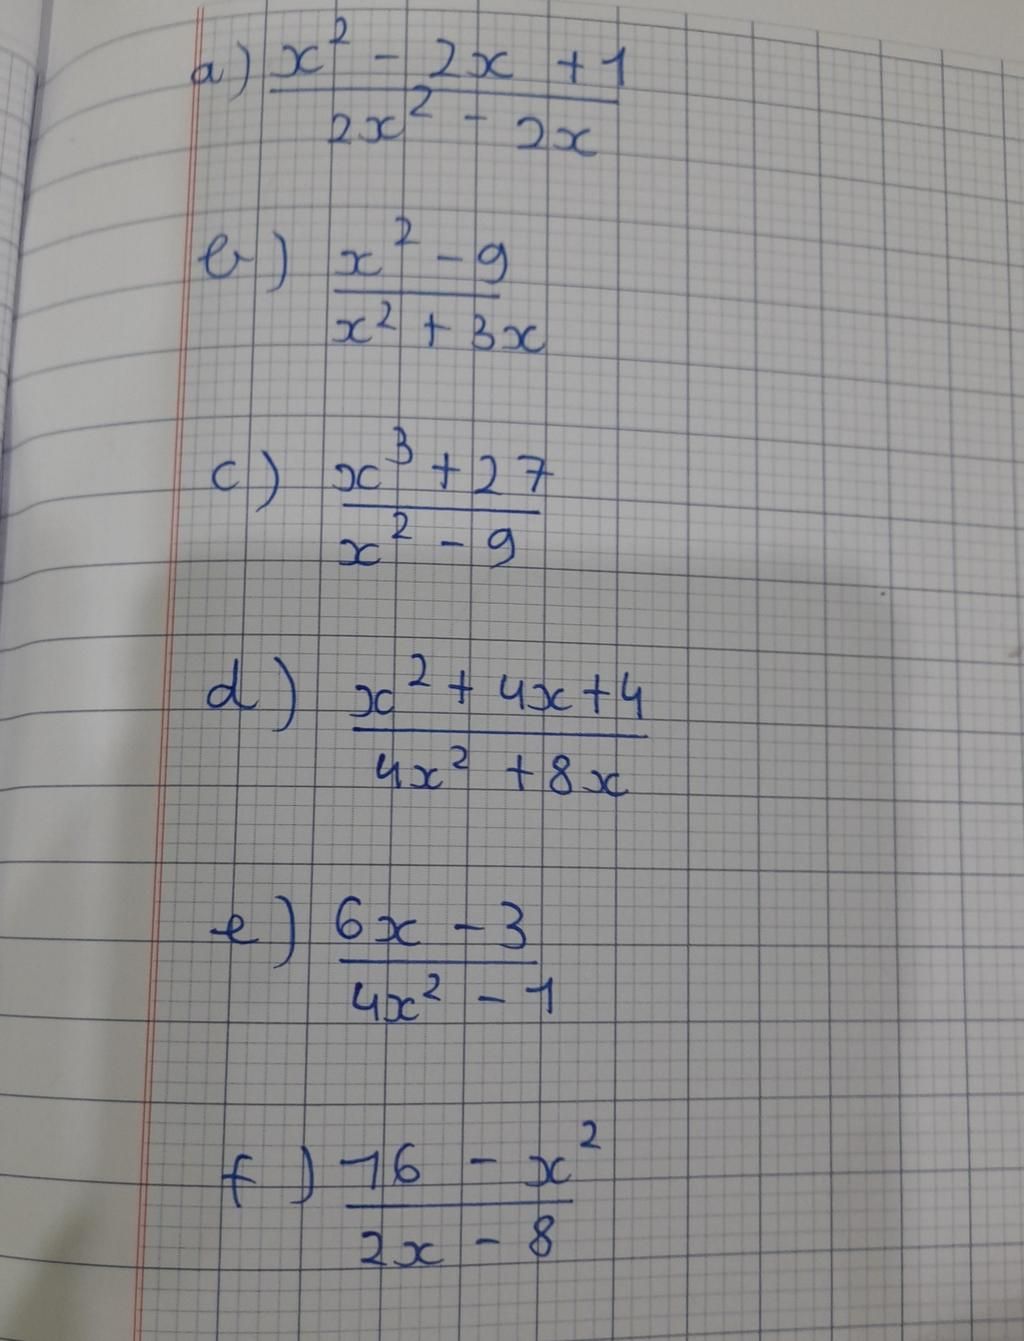 a) x² - 2x + 1
2x² - 2x
b) x² - 9
x² + 3x
c) x³ + 27
x² - 9
d) x² + 4x + 4
4x² + 8x
e) 6x - 3
4x² - 1
f) 16 - x²
2x - 8